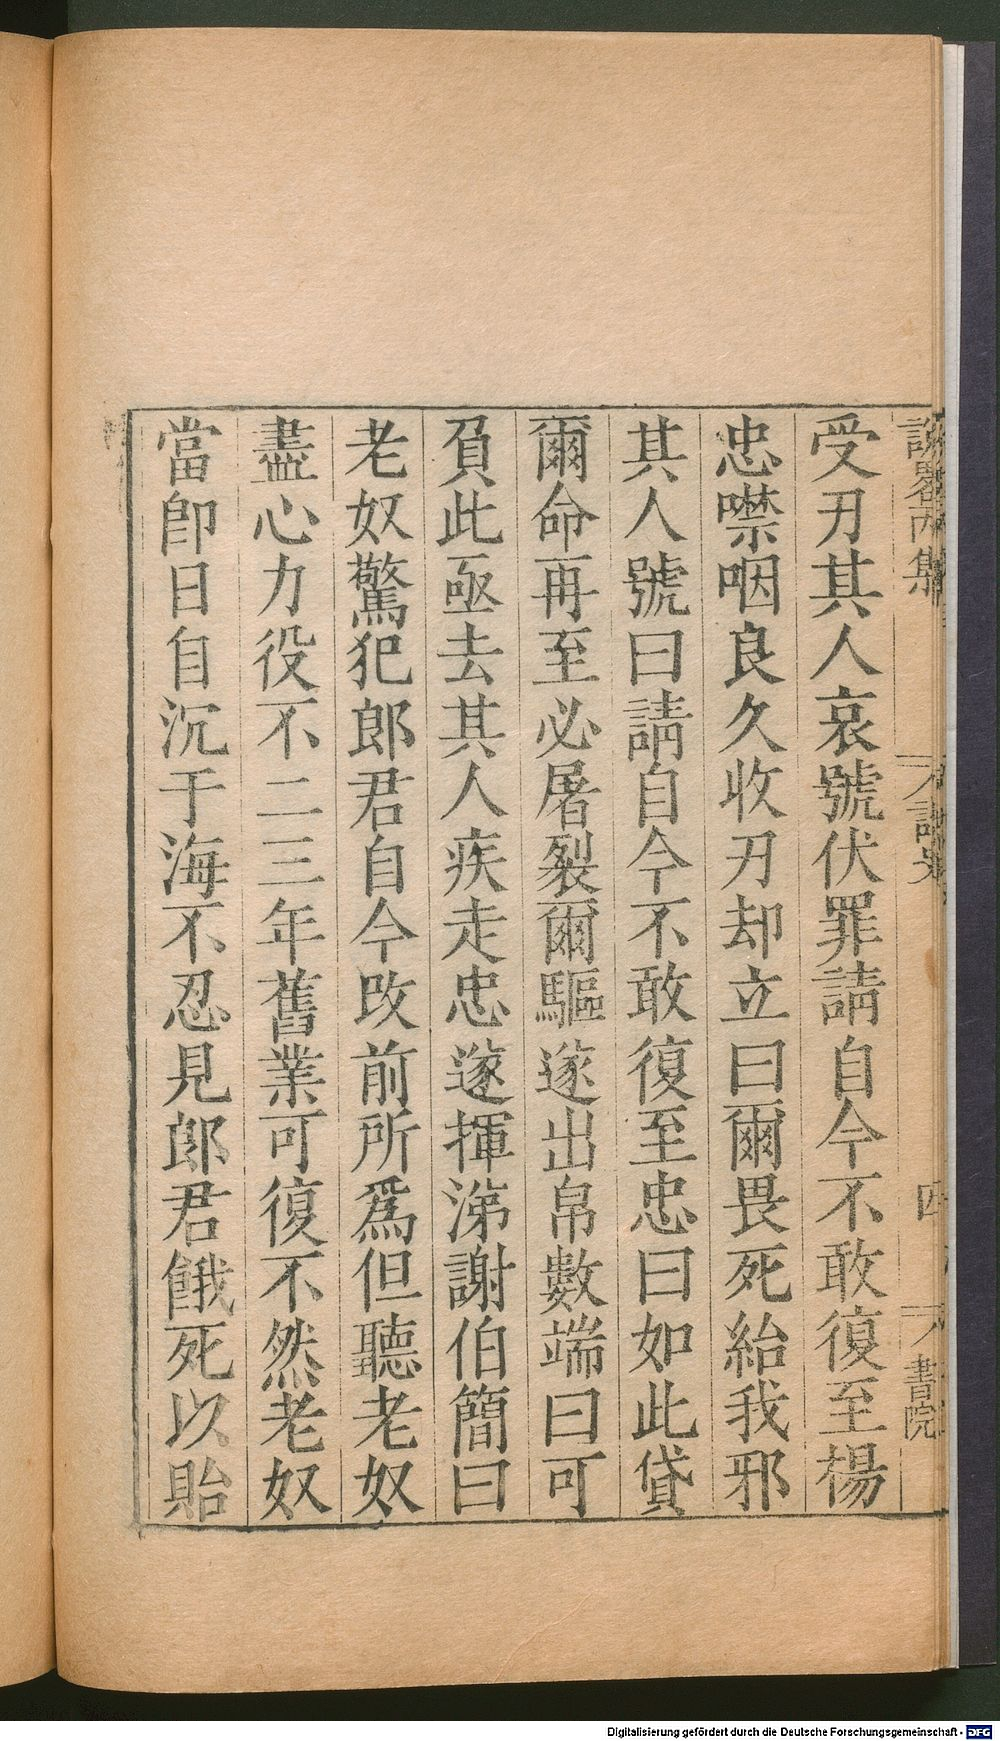 受刃其人哀號伏罪請自今不敢復至楊
忠噤咽良久收刃却立曰爾畏死紿我邪
其人號曰請自今不敢復至忠曰如此貸
爾命再至必屠裂爾驅遂出帛數端曰可
負此亟去其人疾走忠遂揮涕謝伯簡曰
老奴驚犯郎君自今改前所爲但聽老奴
盡心力役不二三年舊業可復不然老奴
當卽日自沉于海不忍見郎君餓死以貽
Digitalisierung gefördert durch die Deutsche Forschungsgemeinschaft - DFG